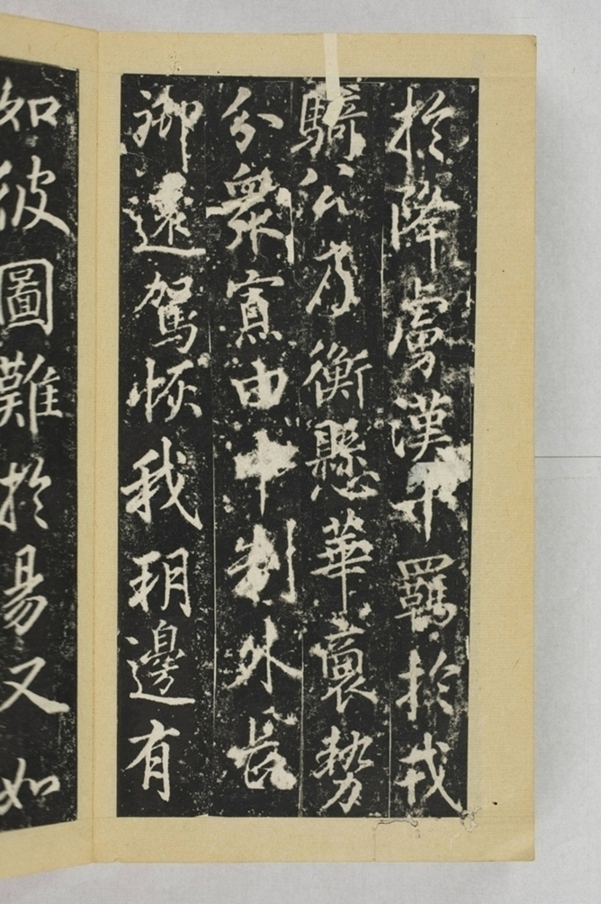 於降虜漢卒羈於戎
騎公乃衡懸華裔勢
分衆寡由中制外長
御遠駕恢我朔邊有
如彼圖難於易又如